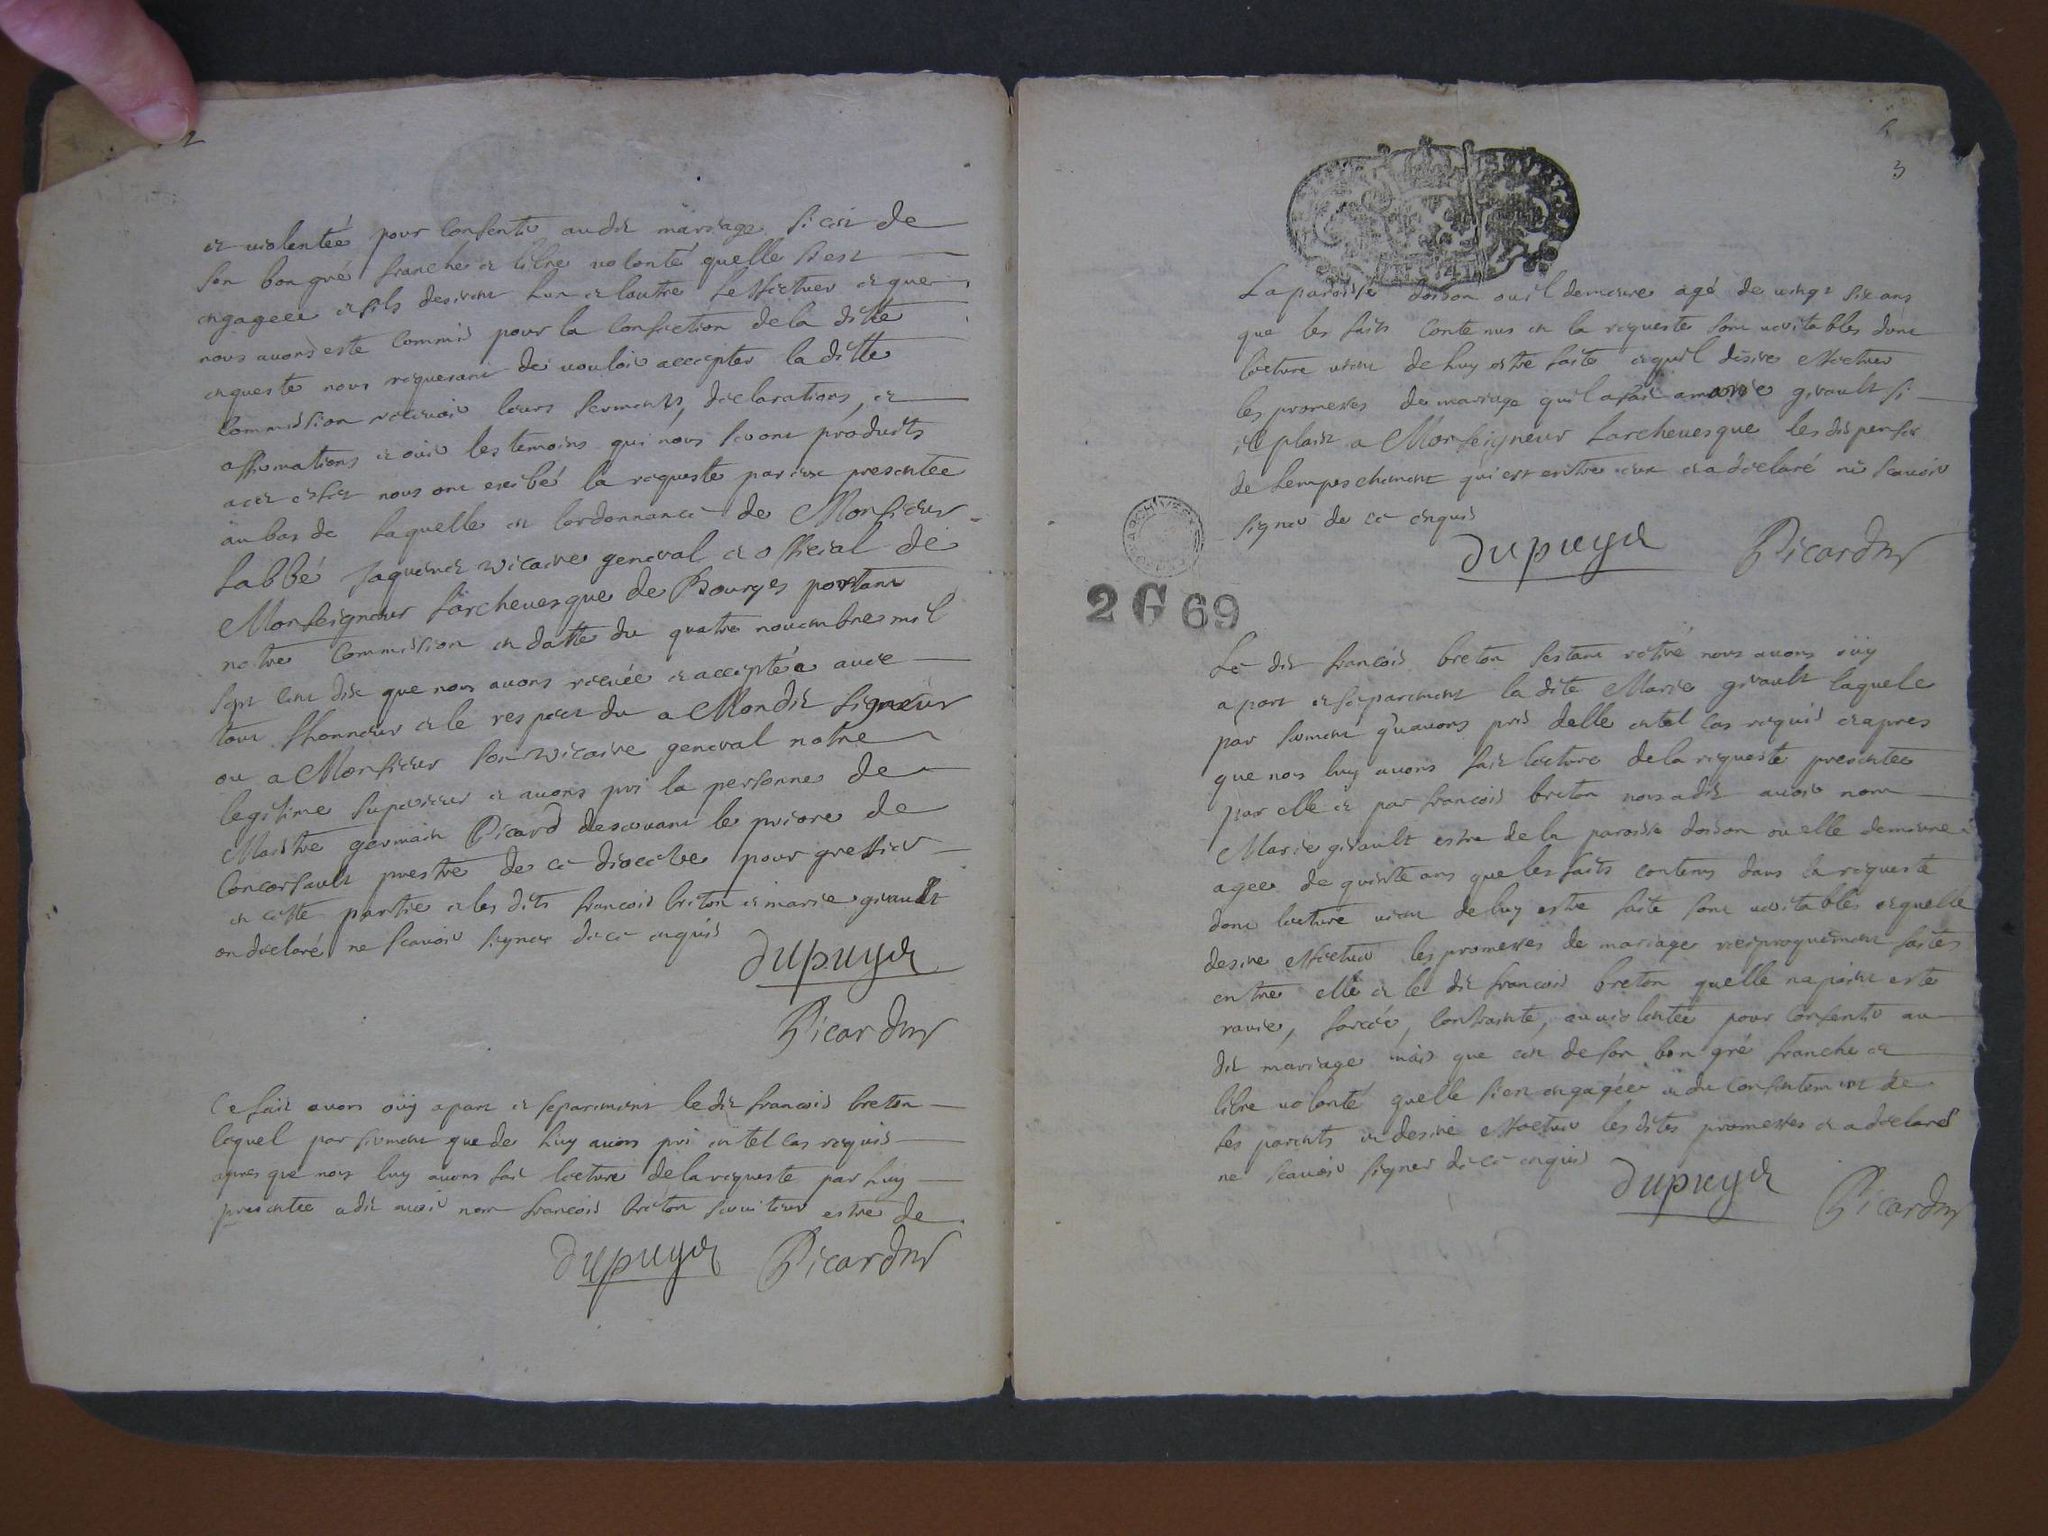 2
et violentée pour consentir audit mariage, si cest de
son bon gré franche et libre volonté quelle sest
engagee et sils desirent lun et lautre leffectuer et que
nous avons esté commis pour la confection de la ditte
enqueste nous requerant de vouloir accepter la ditte
commission recevoir leurs serments, declarations, et
affirmations et ouir les temoins qui nous seront produits
a cet effet nous ont exibé la requeste par eux presentée
au bas de laquelle est lordonnance de Monsieur
Labbé vicaire general et official de
Monseigneur Larchevesque de Bourges portant
notre commission en datte du quatre novembre mil
sept cent dix que nous avons receüe et acceptée avec
tout lhonneur et le respect du a Mondit signeur
ou a Monsieur son vicaire general notre
legitime superieur et avons pris la personne de
Maistre germain Picard deservant le prioré de
Concorsault prestre de ce diocese pour greffier
en cette partie et les dits francois breton et marie girault
on declaré ne scavoir signer de ce enquis
dupuyet
Picard
Ce fait avons oüy apart et separement ledit francois breton
lequel par serment que de luy avons pris en tel cas requis
apres que nous luy avons fait lecture de la requeste par luy
presentée a dit avoir nom francois breton serviteur estre de
dupuyet Picard
3
La paroisse doison ou il demeure agé de vingt six ans
que les faits contenus en la requeste sont veritables dont
lecture vient de luy estre faite et quil desire effectuer
les promesses de mariage quil a fait a marie girault si
il plaist a Monseigneur Larchevesque les dispenser
de lempeschement qui est entre eux et a declaré ne scavoir
signer de ce enquis
dupuyet Picard
2 G 69
Le dit francois breton sestant retiré nous avons oüy
apart et separement la dite Marie girault laquele
par serment quavons pris delle en tel cas requis et apres
que nous luy avons fait lecture de la requeste presentée
par elle et par francois breton nous a dit avoir nom
Marie girault estre de la paroisse doison ou elle demeure
agee de trente ans que les faits contenus dans la requeste
dont lecture vient de luy estre faite sont veritables et quelle
desire effectuer les promesses de mariage reciproquement faites
entre elle et le dit francois breton quelle na point esté
ravie, forcée, contrainte, ou violentée pour consentir au
dit mariage mais que cest de son bon gré franche et
libre volonté quelle sest engagée et du consentement de
ses parents et desire effectuer les dites promesses et a declaré
ne scavoir signer de ce enquis
dupuyet Picard